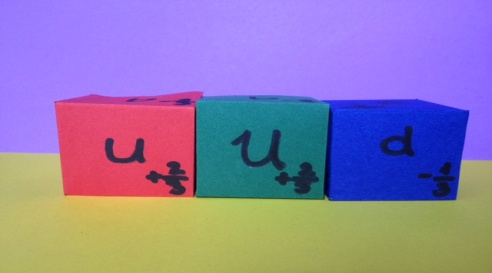 u
+2/3
u
+2/3
d
-1/3